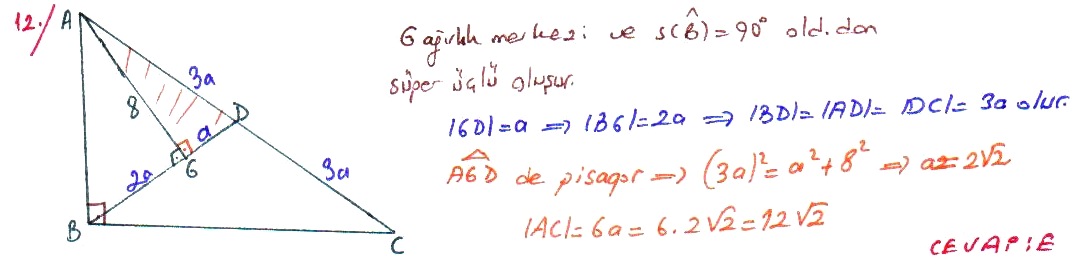 12./
A
8
3a
D
a
G
2a
3a
B
C
G ağırlık merkezi ve s(B̂)=90° old.dan
süper üçlü oluşur.
|GD|=a ⇒ |BG|=2a ⇒ |BD|=|AD|=|DC|=3a olur.
AGD de pisagor ⇒ (3a)²=a²+8² ⇒ a=2√2
|AC|=6a=6.2√2=12√2
CEVAP:E